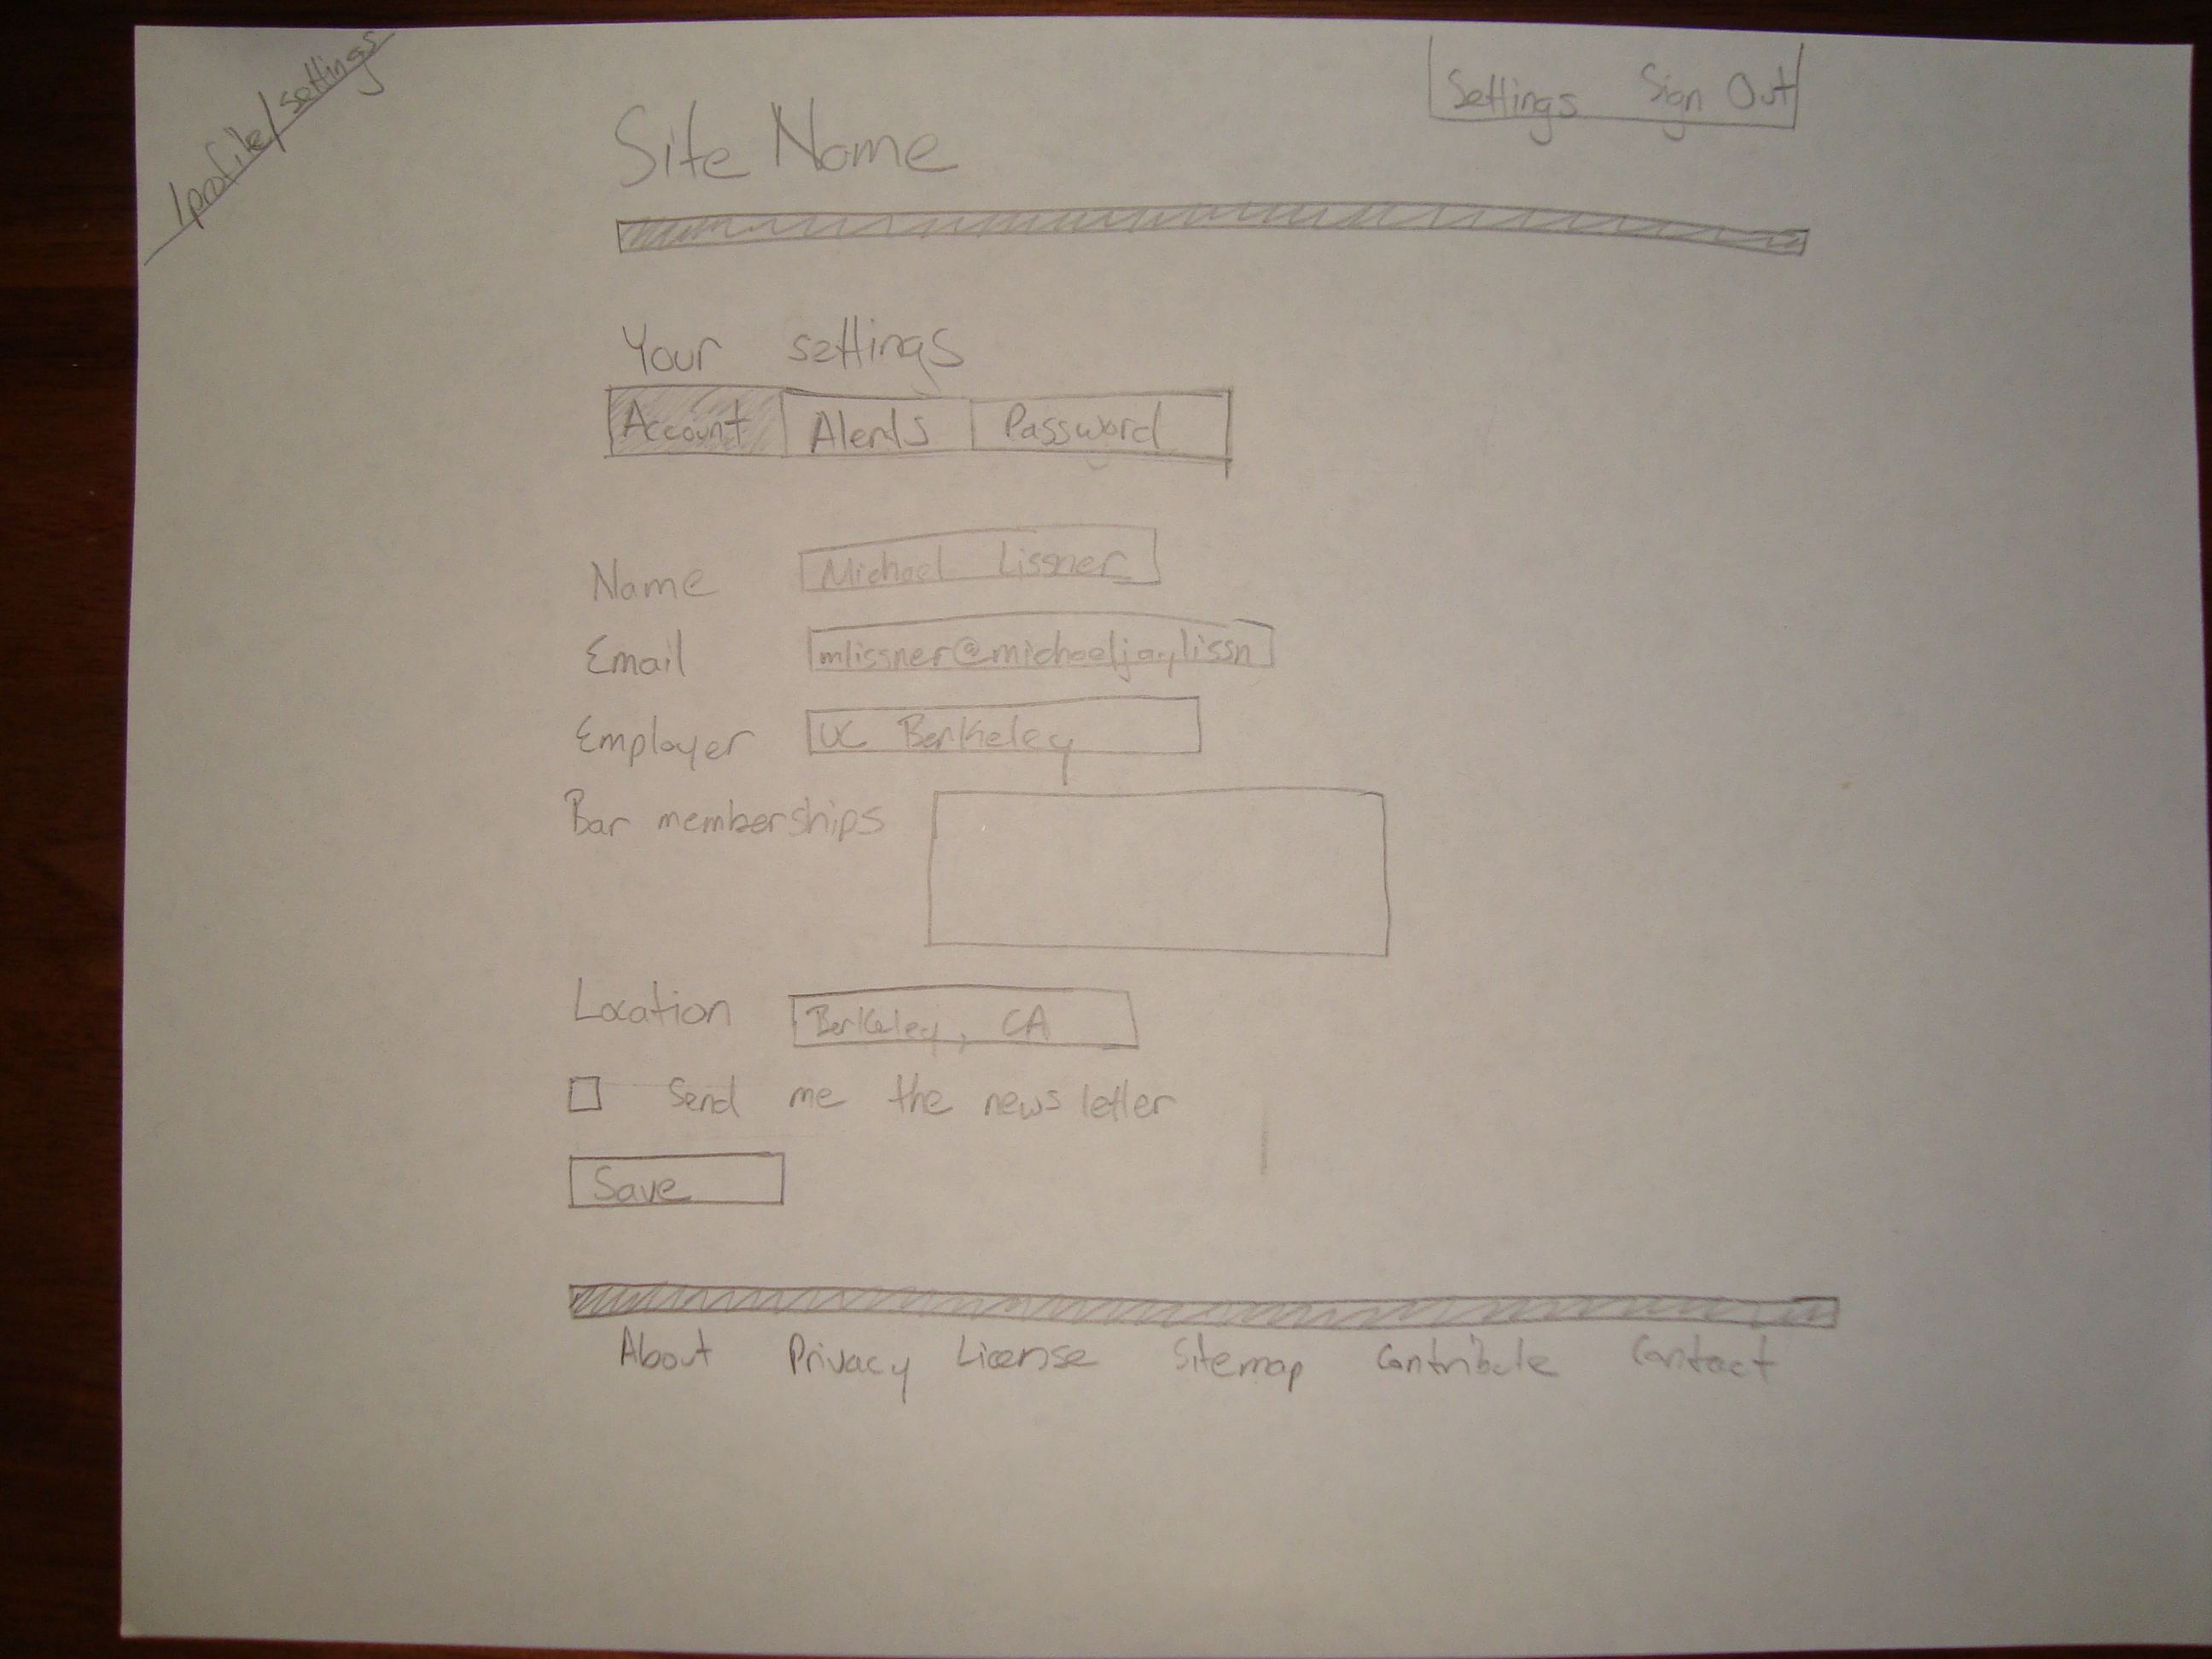 /profile/settings
Settings Sign Out
Site Name
Your settings
Account Alerts Password
Name Michael Lissner
Email mlissner@michaeljaylissn
Employer UC Berkeley
Bar memberships
Location Berkeley, CA
Send me the news letter
Save
About Privacy License Sitemap Contribute Contact